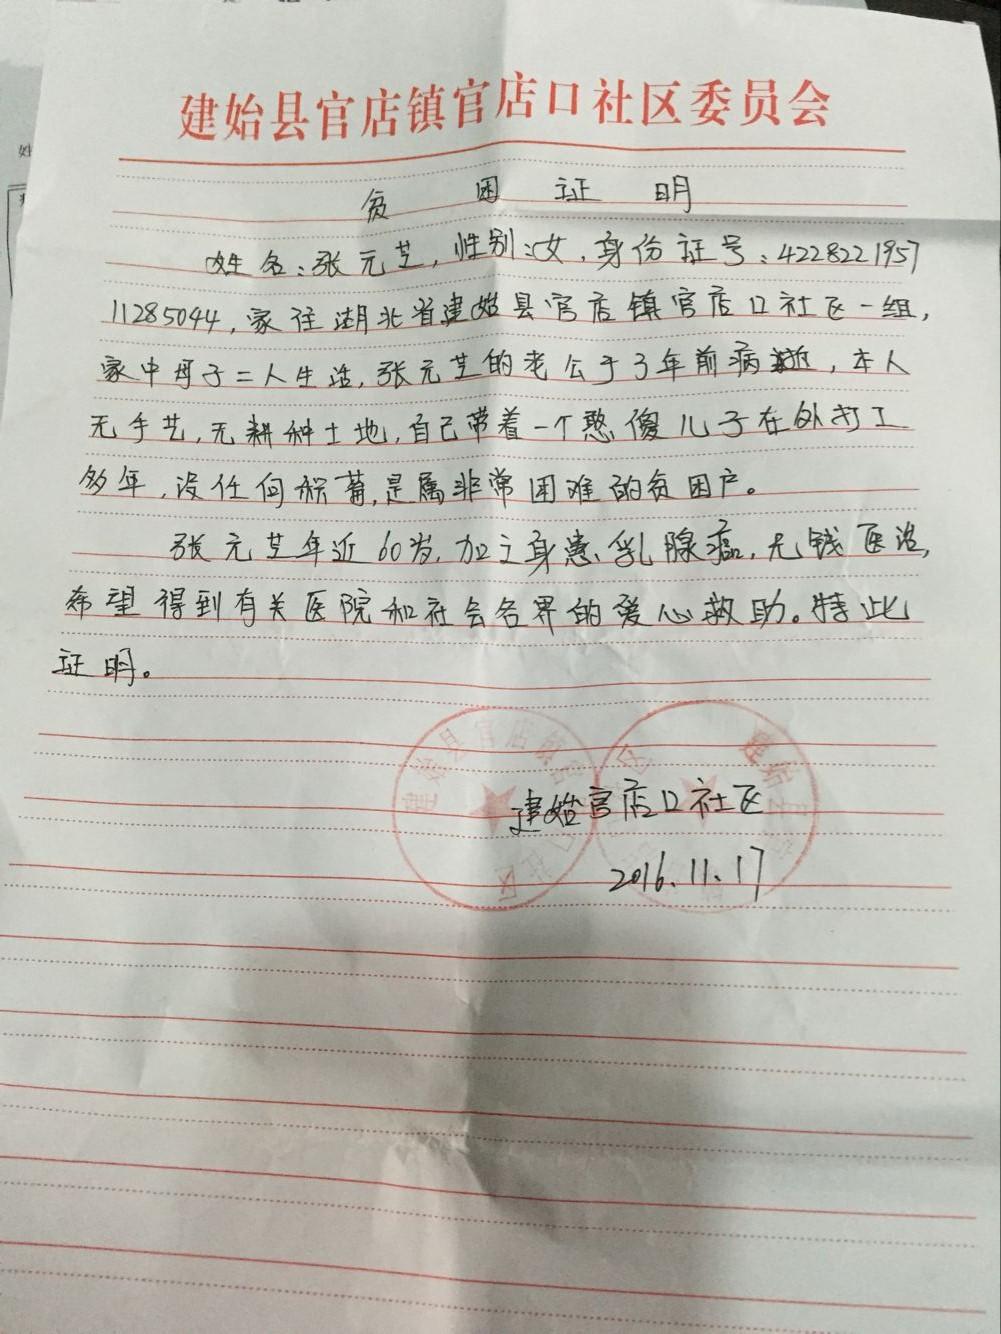 建始县官店镇官店口社区委员会
贫困证明
姓名:张元芝,性别:女,身份证号:4228221957
11285044,家住湖北省建始县官店镇官店口社区一组,
家中母子二人生活,张元芝的老公于3年前病逝,本人
无手艺,无耕种土地,自己带着一个憨傻儿子在外打工
多年,没任何积蓄,是属非常困难的贫困户。
张元芝年近60岁,加之身患乳腺癌,无钱医治,
希望得到有关医院和社会各界的爱心救助。特此
证明。
建始官店口社区
2016.11.17
建始县官店镇官店口社区